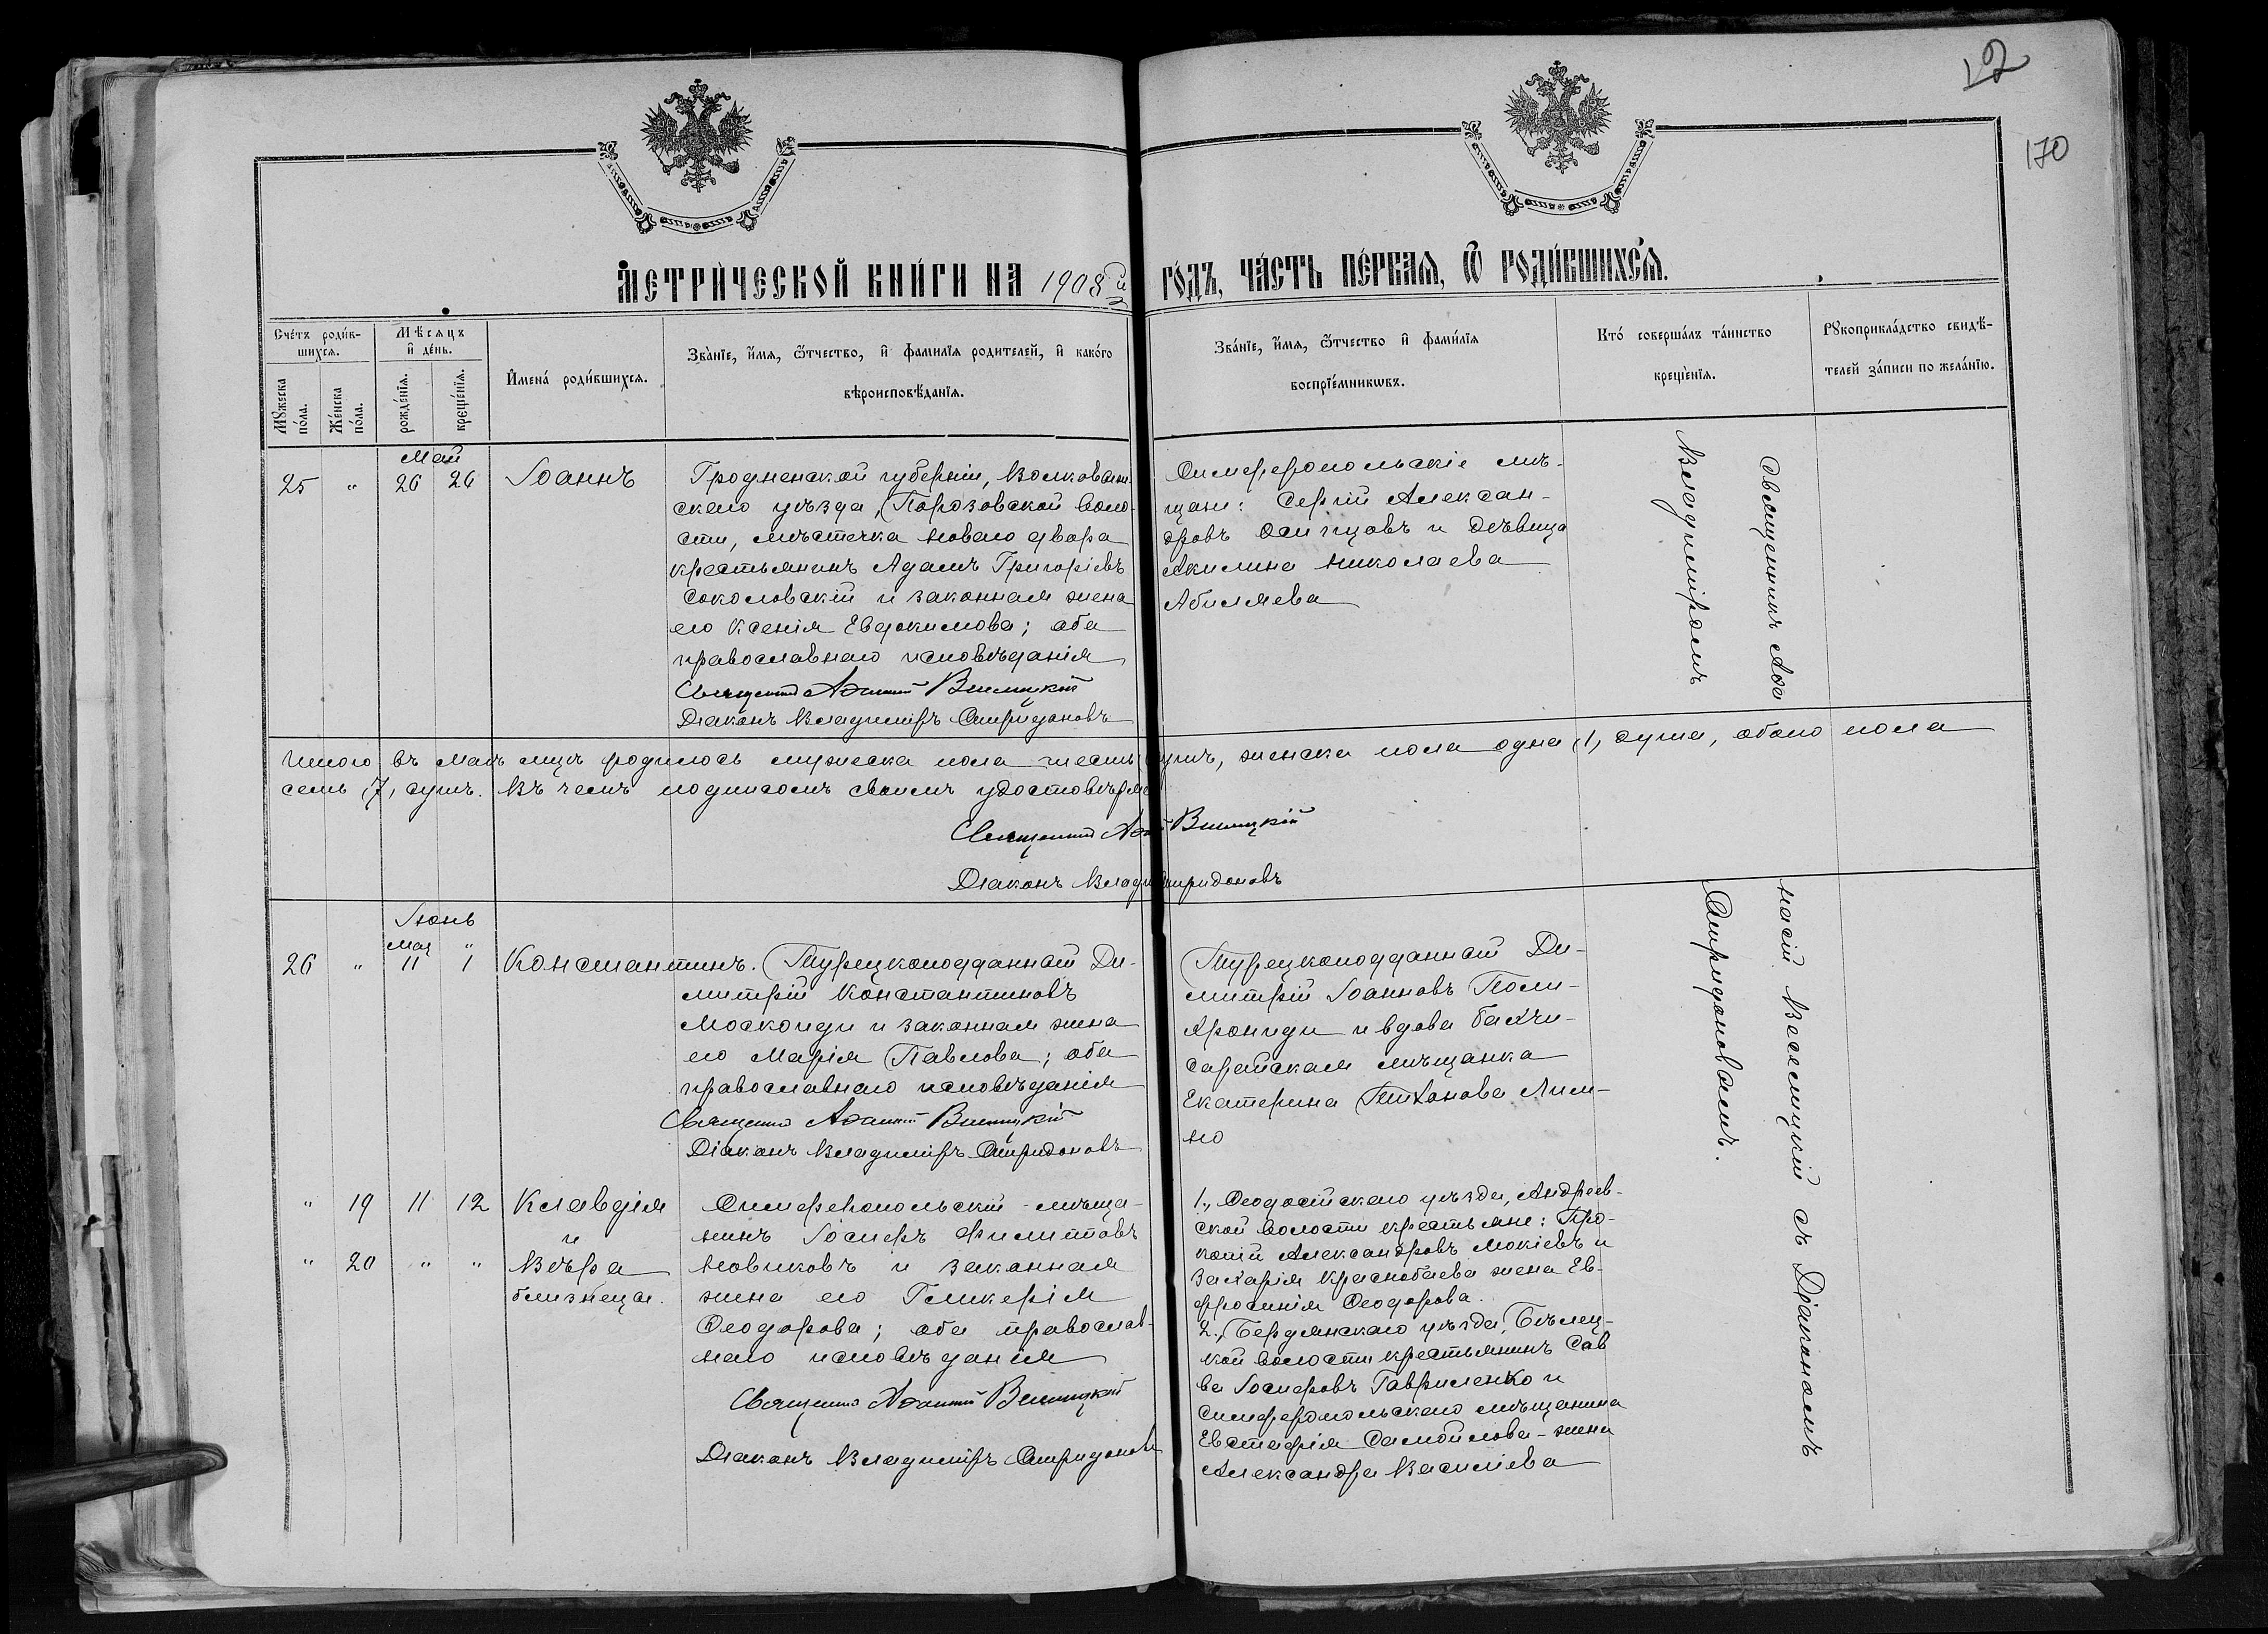 12
170
МЕТРИ́ЧЕСКОЙ КНИ́ГИ НА 1908й ГО́ДЪ, ЧА́СТЬ ПЕ́РВАЯ, Ѿ РОДИ́ВШИХСЯ.
Сче́тъ роди́в-
шихся.
Мꙋжеска
по́ла.
Же́нска
по́ла.
Мѣсяцъ
и де́нь.
рожде́нїя.
креще́нїя.
Имена́ роди́вшихся.
Зва́нїе, и́мя, ѻ́тчество, и фамилїя родителей, и како́го
вѣроисповѣ́данїя.
Зва́нїе, и́мя, ѻ́тчество и фами́лїя
воспрїе́мникѡвъ.
Кто́ соверша́лъ та́инство
креще́нїя.
Рꙋкоприкла́дство свидѣ́-
телей за́писи по жела́нїю.
Май
25 " 26 26 Іоаннъ
Гродненской губерніи, Волковыс-
скаго уѣзда, Порозовской воло-
сти, мѣстечка Новаго двора
крестьянинъ Адамъ Григоріевъ
Соколовскій и законная жена
его Ксенія Евдокимова; оба
православнаго исповѣданія
Священникъ Аѳанасій
Діаконъ Владиміръ Спиридоновъ
Симферопольскіе мѣ-
щане: Сергій Алексан-
дровъ Осипцовъ и дѣвица
Акилина Николаева
Абиляева
Священникъ Аѳа
Владиміромъ
Итого въ маѣ мцѣ родилось мужеска пола шесть душъ, женска пола одна (1) душа, обоего пола
семь (7) душъ. Въ чемъ подписомъ своимъ удостовѣряемъ
Священникъ
Діаконъ Спиридоновъ
Іюнь
Мая "
26 " 11 1 Константинъ.
Турецкоподданный Ди-
митрій Константиновъ
Москоиди и законная жена
его Марія Павлова; оба
православнаго исповѣданія
Священникъ Аѳанасій
Діаконъ Владиміръ Спиридоновъ
Турецкоподданный Ди-
митрій Іоанновъ Поли-
хрониди и вдова Бахчи-
сарайская мѣщанка
Екатерина Тихонова Лим-
но
насій Веселицкій съ Діакономъ
Спиридоновымъ.
" 19 11 12 Клавдія
и
" 20 " " Вѣра
близнецы.
Симферопольскій мѣща-
нинъ Іосифъ Филиповъ
Новиковъ и законная
жена его Гликерія
Ѳеодорова; оба православ-
наго исповѣданія
Священникъ Аѳанасій
Діаконъ Владиміръ Спиридоновъ
1., Ѳеодосійскаго уѣзда, Андреев-
ской волости крестьяне: Про-
копій Александровъ Мокіевъ и
Захарія Краснобаева жена Ев-
фросинія Ѳеодорова.
2., Бердянскаго уѣзда, Бѣлец-
кой волости крестьянинъ Сав
ва Іосифовъ Гавриленко и
симферопольскаго мѣщанина
Евстафія Самойлова - жена
Александра Василіева